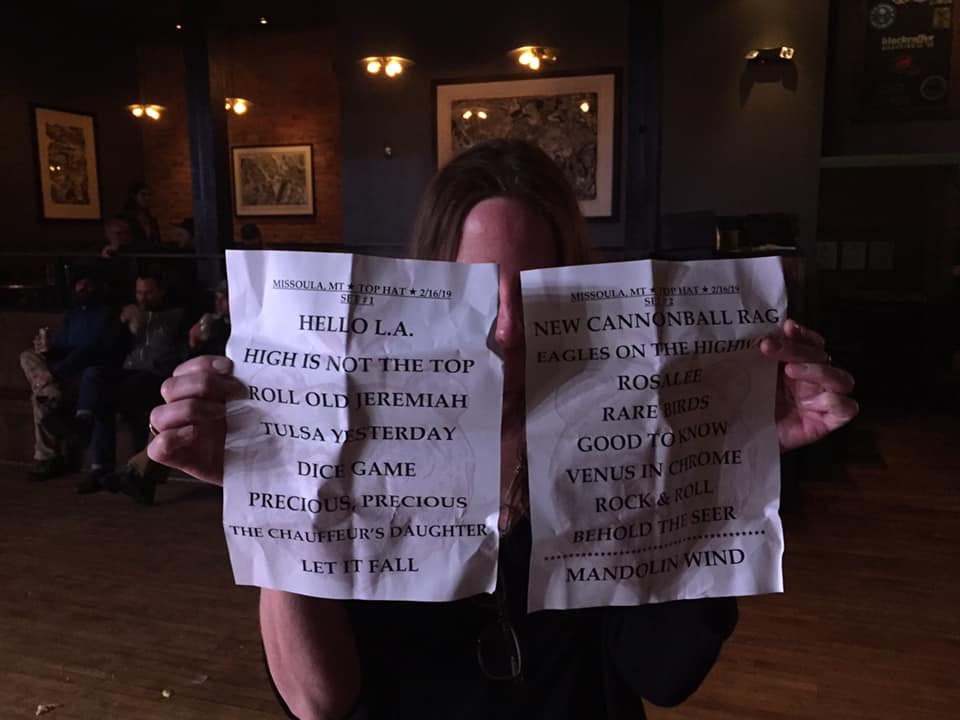 MISSOULA, MT ★ TOP HAT ★ 2/16/19
SET #1
HELLO L.A.
HIGH IS NOT THE TOP
ROLL OLD JEREMIAH
TULSA YESTERDAY
DICE GAME
PRECIOUS, PRECIOUS
THE CHAUFFEUR'S DAUGHTER
LET IT FALL
MISSOULA, MT ★ TOP HAT ★ 2/16/19
SET #2
NEW CANNONBALL RAG
EAGLES ON THE HIGHW
ROSALEE
RARE BIRDS
GOOD TO KNOW
VENUS IN CHROME
ROCK & ROLL
BEHOLD THE SEER
MANDOLIN WIND